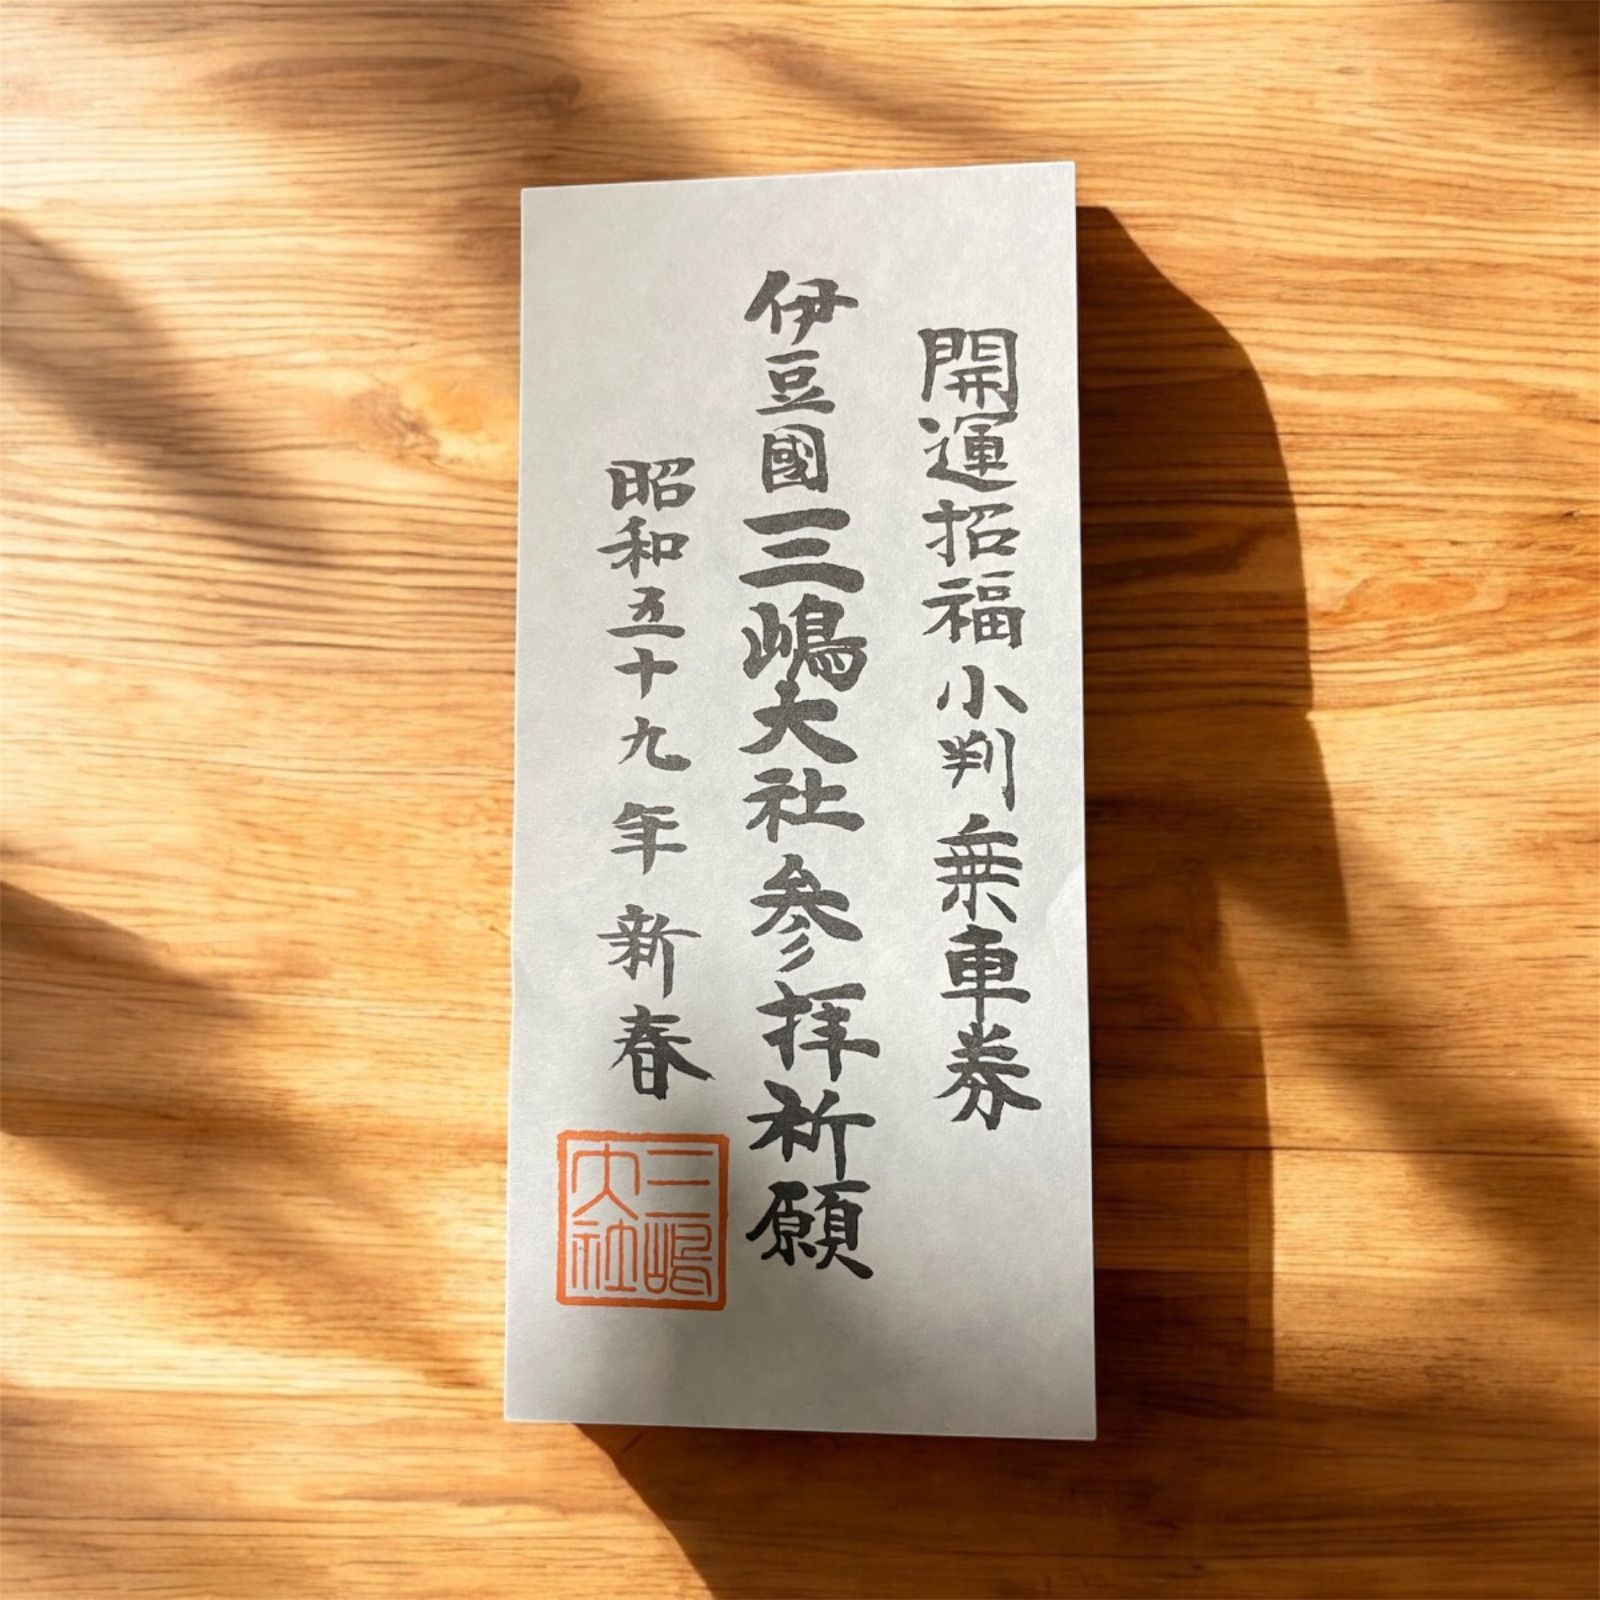 開運招福小判乗車券
伊豆國三嶋大社参拝祈願
昭和五十九年新春
三嶋大社